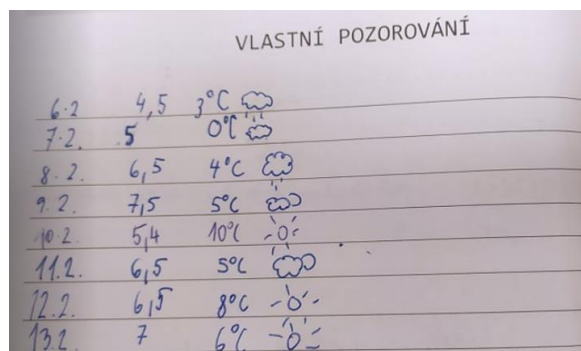 VLASTNÍ POZOROVÁNÍ
6.2 4,5 3°C
7.2. 5 0°C
8.2. 6,5 4°C
9.2. 7,5 5°C
10.2. 5,4 10°C
11.2. 6,5 5°C
12.2. 6,5 8°C
13.2 7 6°C